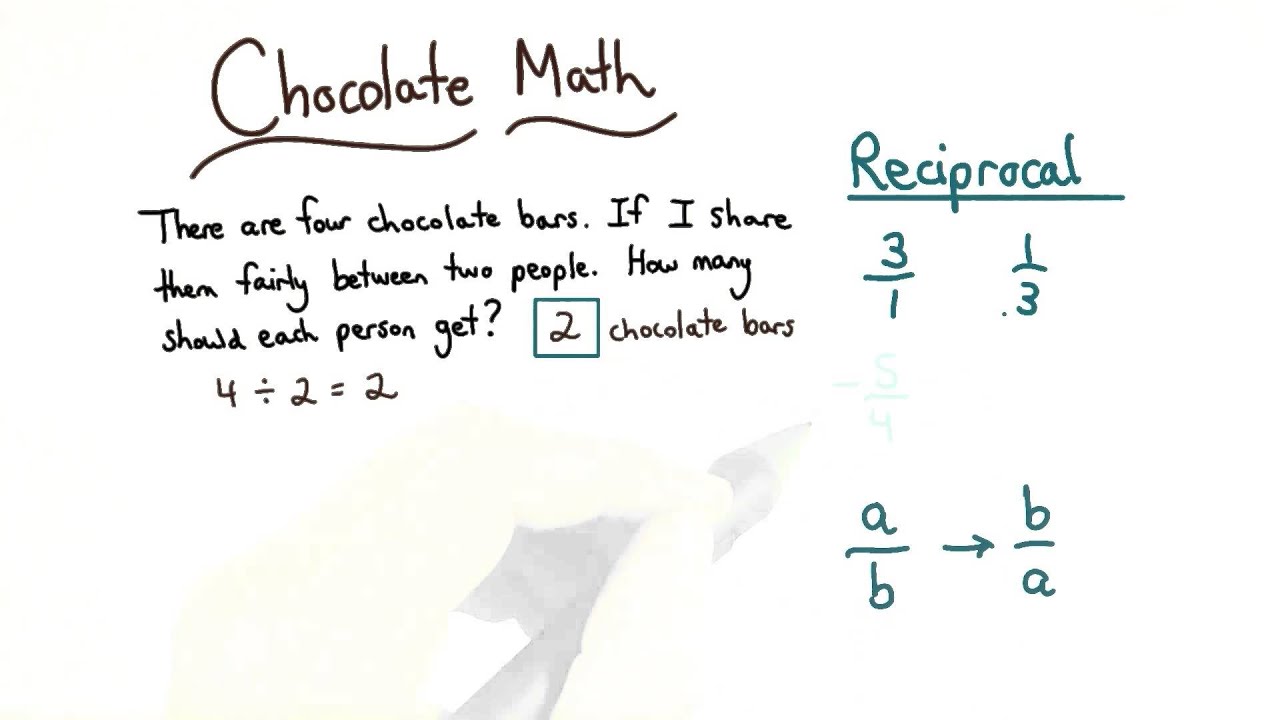 Chocolate Math
There are four chocolate bars. If I share
them fairly between two people. How many
should each person get? 2 chocolate bars
4 ÷ 2 = 2
Reciprocal
3/1 1/3
- 5/4
a/b → b/a